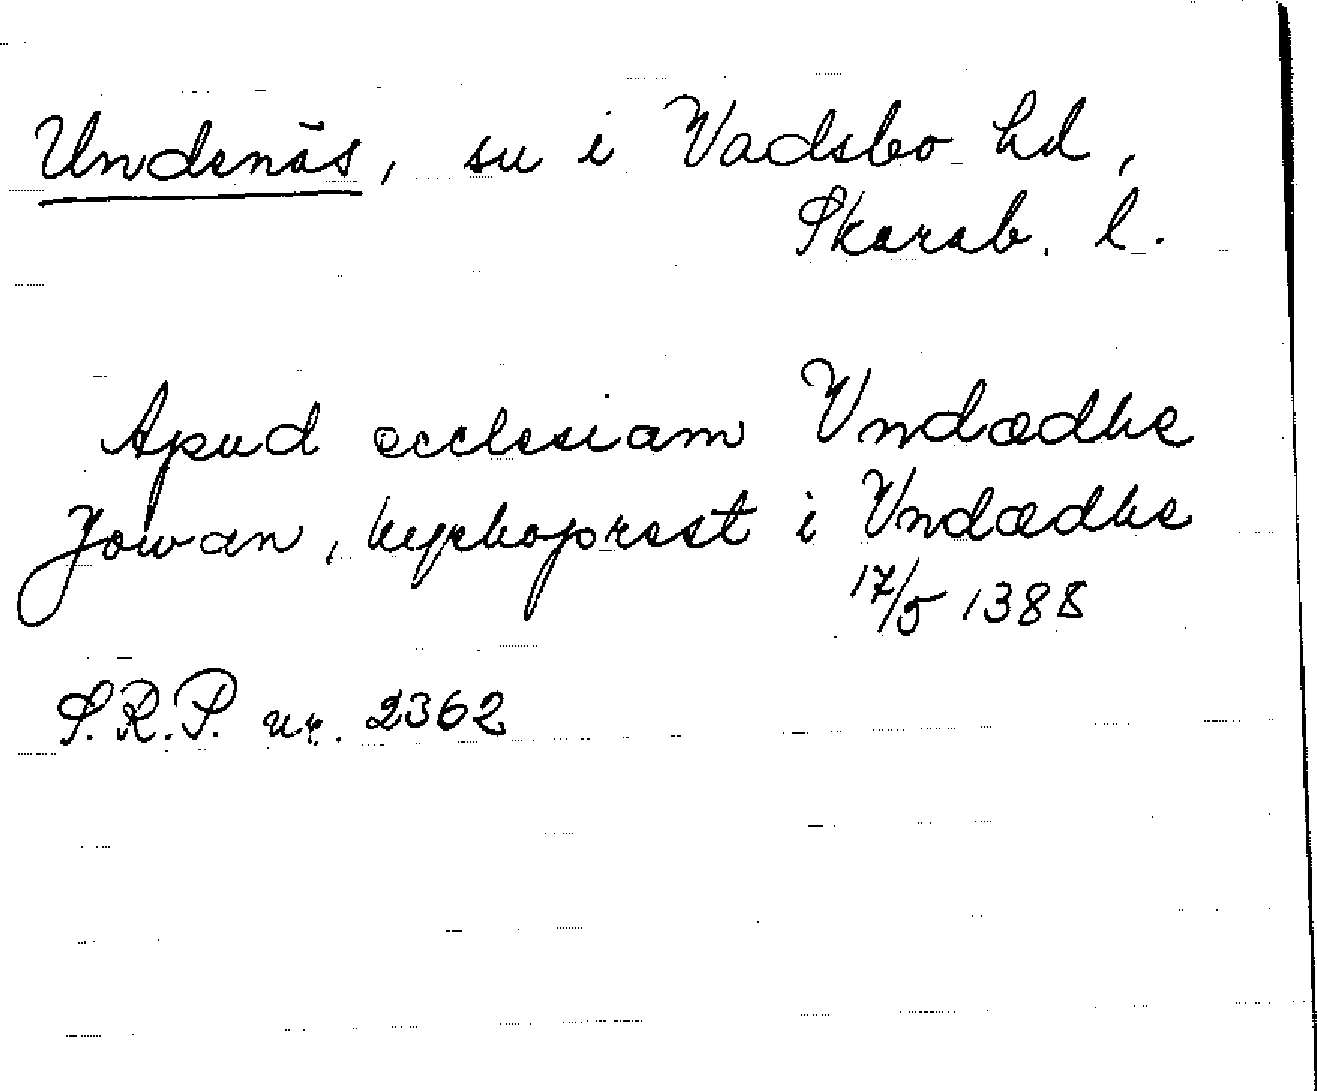 Undenäs, sn i Vadsbo hd,
Skarab. l.
Apud ecclesiam Vndædhe
Jowan, kyrkoprest i Vndædhe
17/5 1388
S.R.P. nr. 2362